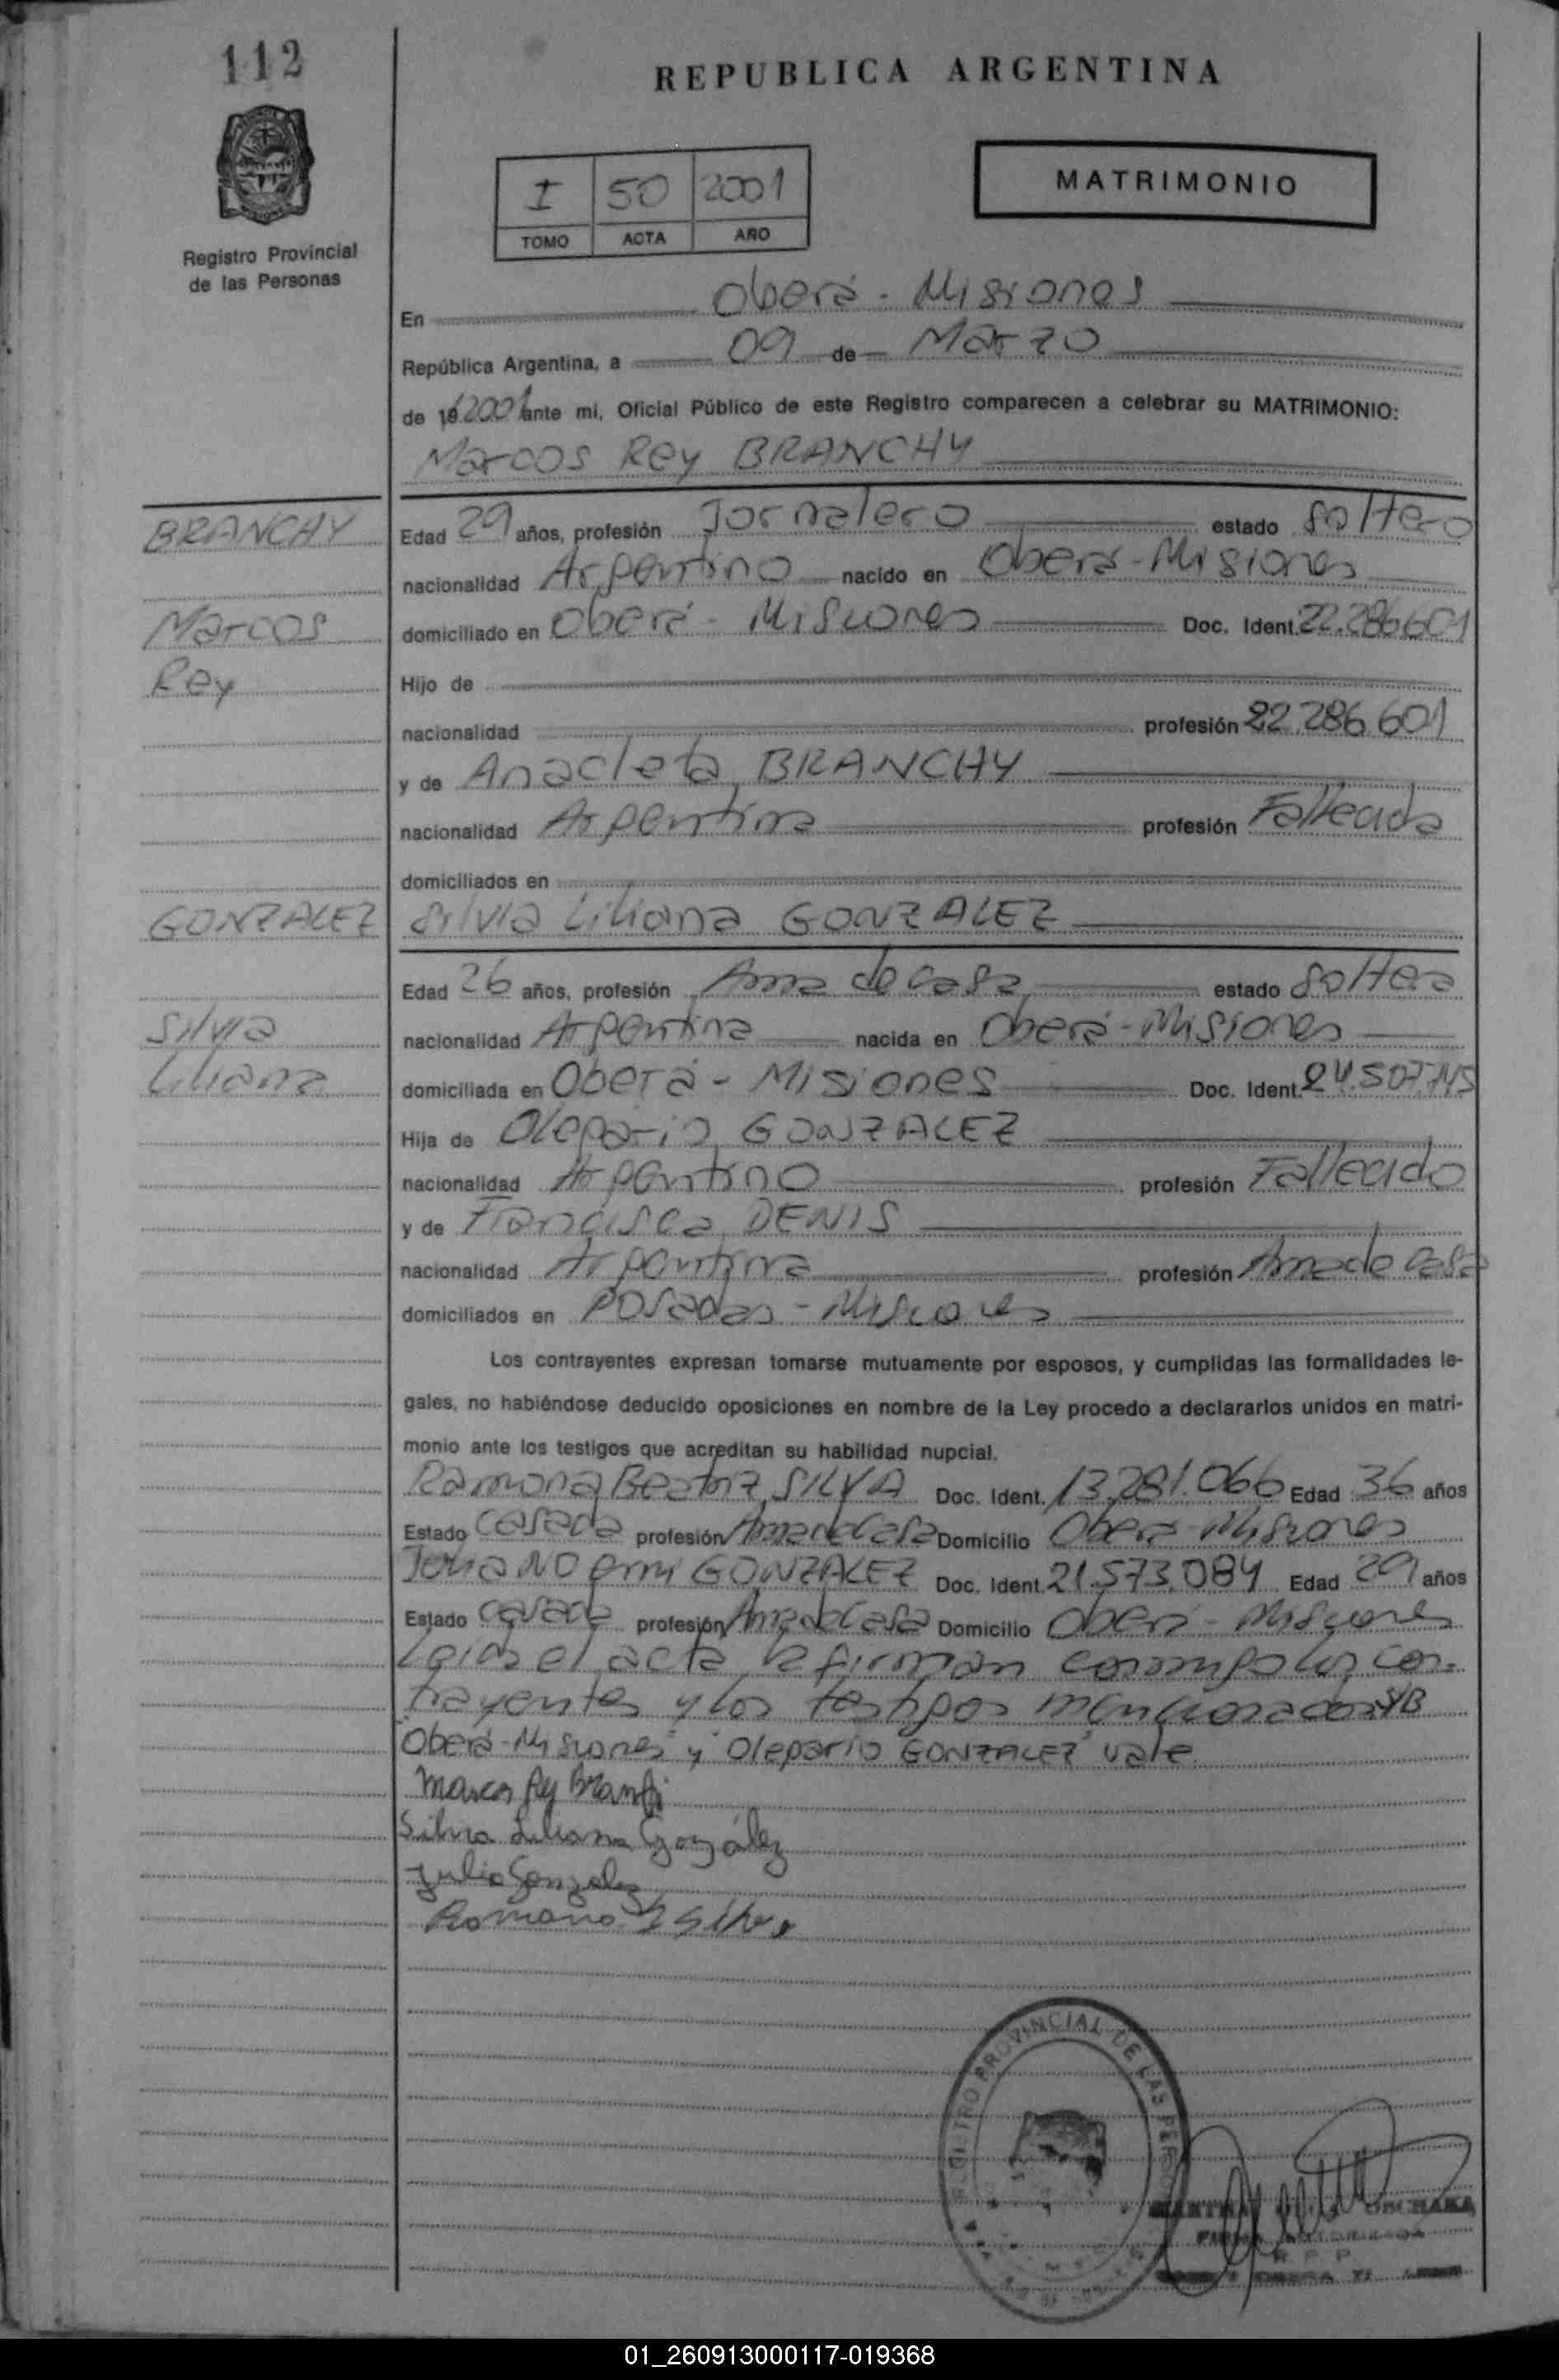 112
REPUBLICA ARGENTINA
I 50 2001
TOMO ACTA AÑO
MATRIMONIO
Registro Provincial
de las Personas
En Oberá - Misiones
República Argentina, a 09 de Marzo
de 19 2001 ante mi, Oficial Público de este Registro comparecen a celebrar su MATRIMONIO:
Marcos Rey BRANCHY
BRANCHY
Edad 29 años, profesión Jornalero estado soltero
nacionalidad Argentino nacido en Oberá - Misiones
Marcos
domiciliado en Oberá - Misiones Doc. Ident. 22.286.601
Rey
Hijo de
nacionalidad profesión 22.286.601
y de Anacleta BRANCHY
nacionalidad Argentina profesión Fallecida
domiciliados en
GONZALEZ
Silvia Liliana GONZALEZ
Edad 26 años, profesión Ama de casa estado soltera
Silvia
nacionalidad Argentina nacida en Oberá - Misiones
Liliana
domiciliada en Oberá - Misiones Doc. Ident. 24.507.745
Hija de Olegario GONZALEZ
nacionalidad Argentino profesión Fallecido
y de Francisca DENIS
nacionalidad Argentina profesión Ama de casa
domiciliados en Posadas - Misiones
Los contrayentes expresan tomarse mutuamente por esposos, y cumplidas las formalidades le-
gales, no habiéndose deducido oposiciones en nombre de la Ley procedo a declararlos unidos en matri-
monio ante los testigos que acreditan su habilidad nupcial.
Ramona Beatriz SILVA Doc. Ident. 13.281.066 Edad 36 años
Estado casada profesión Ama de Casa Domicilio Oberá - Misiones
Julia Noemi GONZALEZ Doc. Ident. 21.573.084 Edad 29 años
Estado casada profesión Ama de Casa Domicilio Oberá - Misiones
Leida el acta la firman conmigo los con-
trayentes y los testigos mencionados S/B
"Oberá - Misiones" y "Olegario GONZALEZ" vale
Marcos Rey Branchi
Silvia Liliana González
Julia Gonzalez
Ramona B Silva
REGISTRO PROVINCIAL DE LAS PERS
FIRMA AUTORIZADA
R. P. P.
01_260913000117-019368